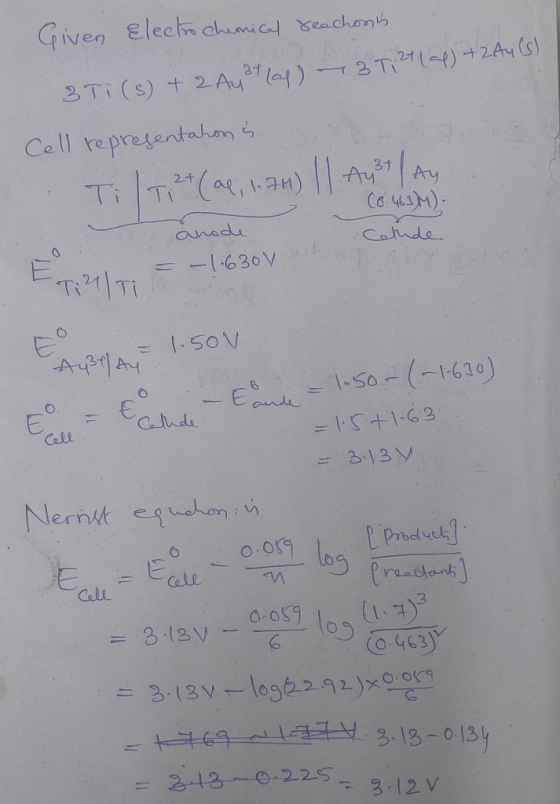 Given Electrochemical reaction is
3Ti(s) + 2Au³⁺(aq) → 3Ti²⁺(aq) + 2Au(s)
Cell representation is
Ti | Ti²⁺(aq, 1.7M) || Au³⁺ | Au
(0.463M).
anode Cathode
E⁰ Ti²⁺/Ti = -1.630V
E⁰ Au³⁺/Au = 1.50V
E⁰ Cell = E⁰ Cathode - E⁰ anode = 1.50 - (-1.630)
= 1.5 + 1.63
= 3.13V
Nernst equation is
E Cell = E⁰ Cell - 0.059/n log [Products]/[reactants]
= 3.13V - 0.059/6 log (1.7)³/(0.463)²
= 3.13V - log(22.92) × 0.059/6
= 1.769 ~ 1.77V 3.13 - 0.134
= 3.13 - 0.225 = 3.12V